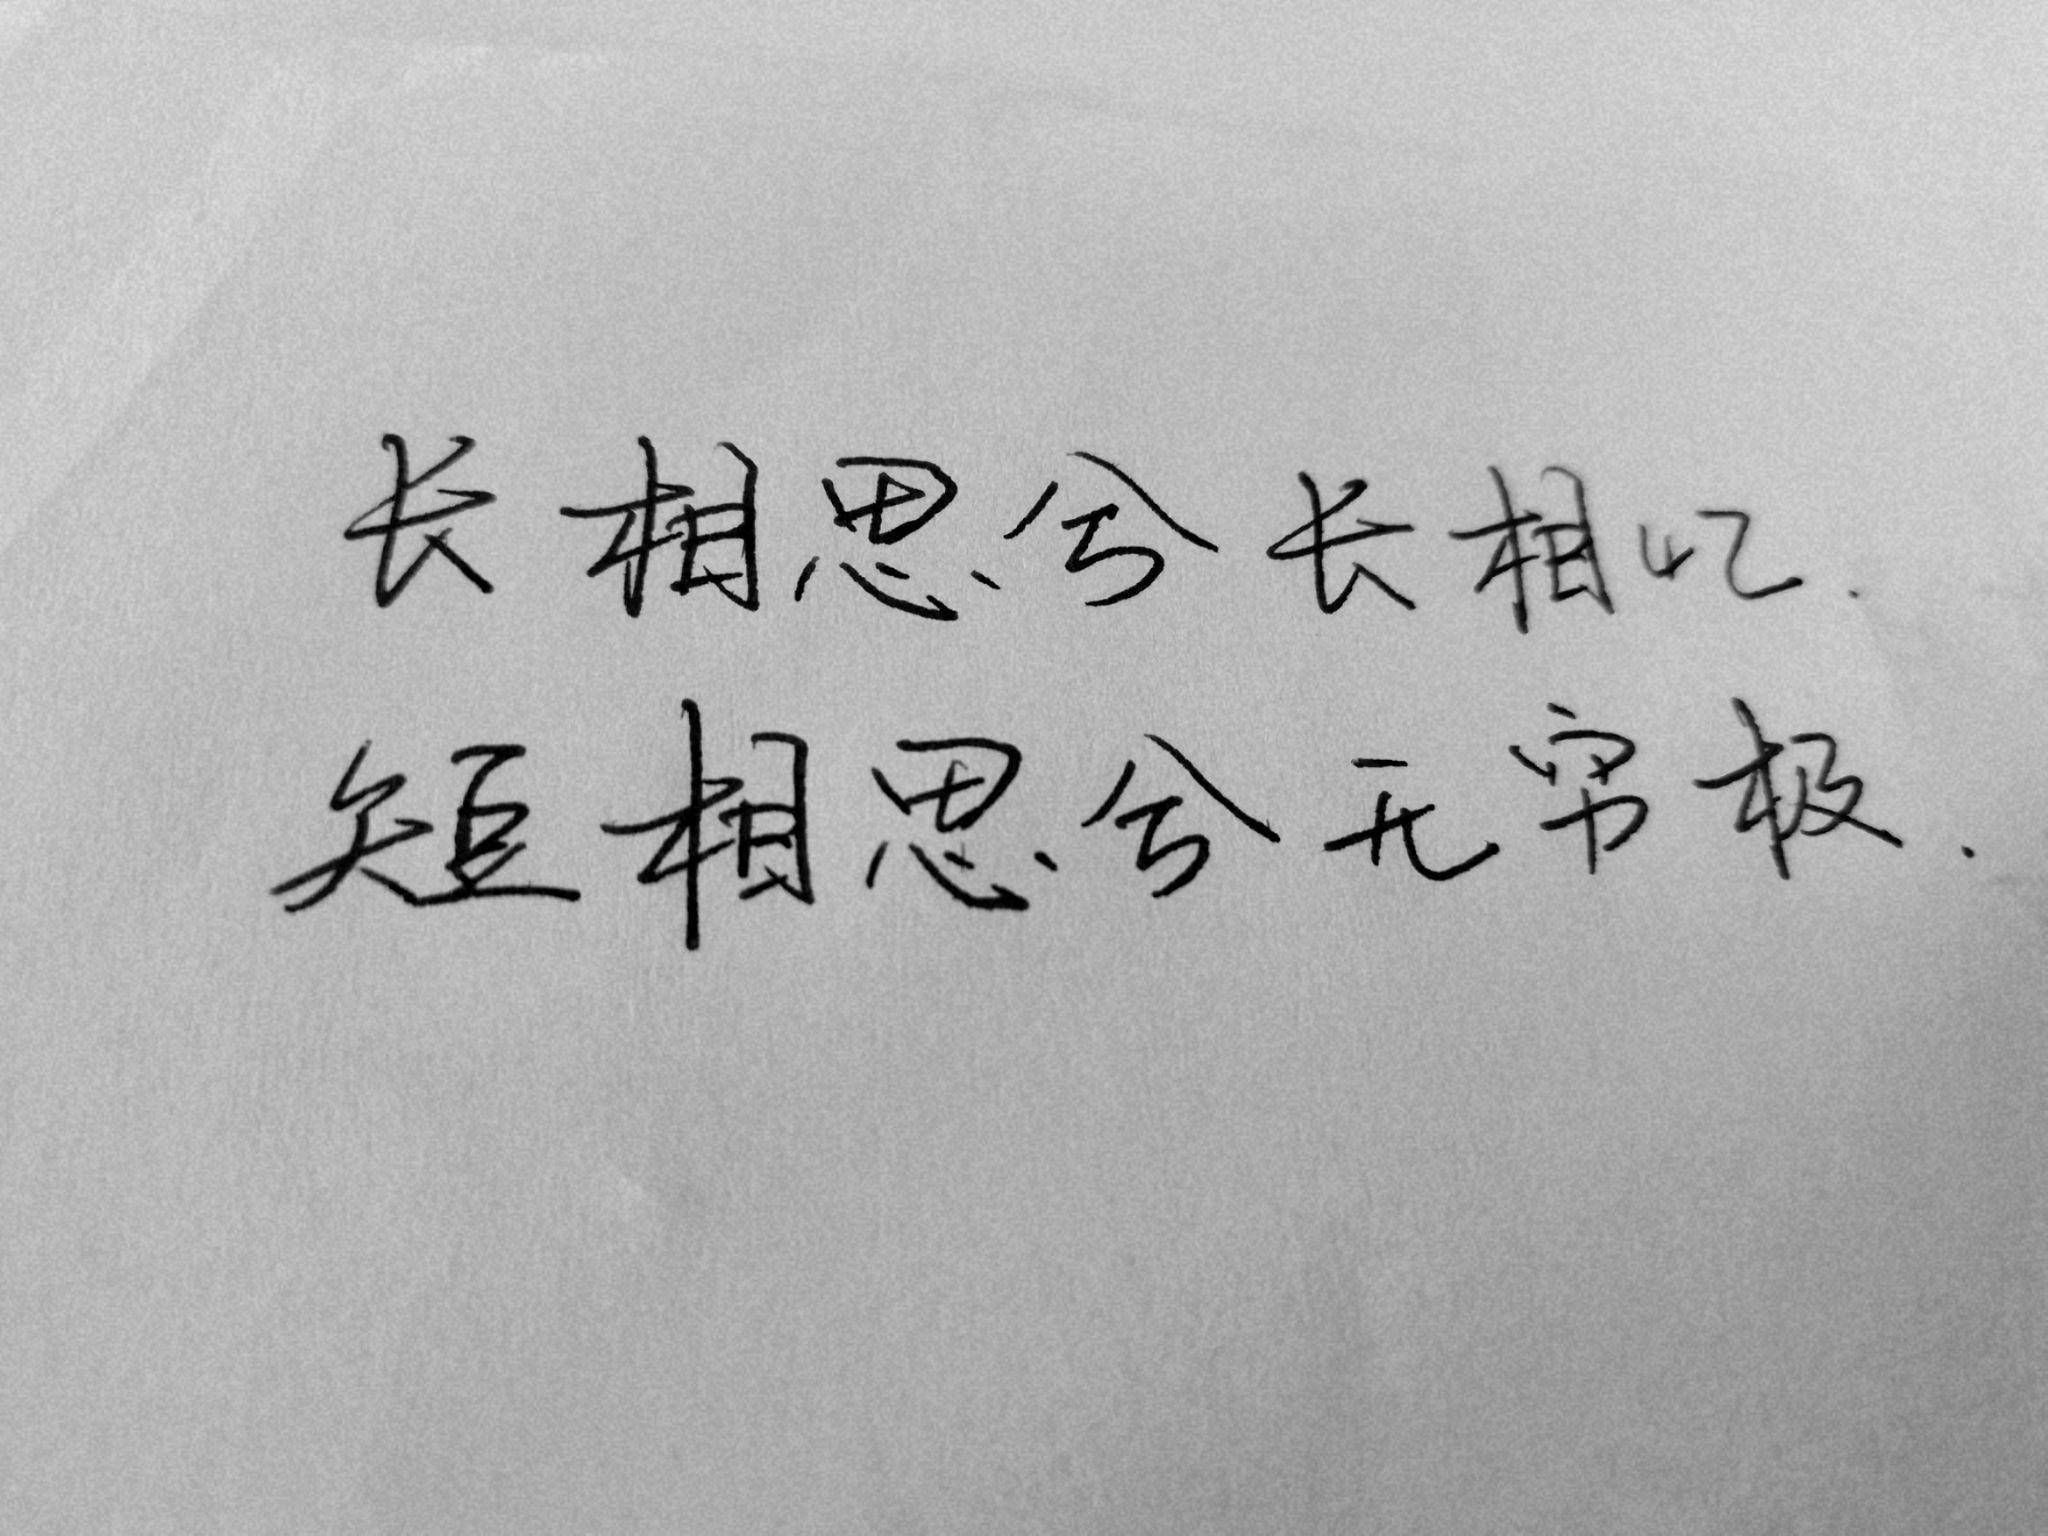 长相思兮长相忆.
短相思兮无穷极.